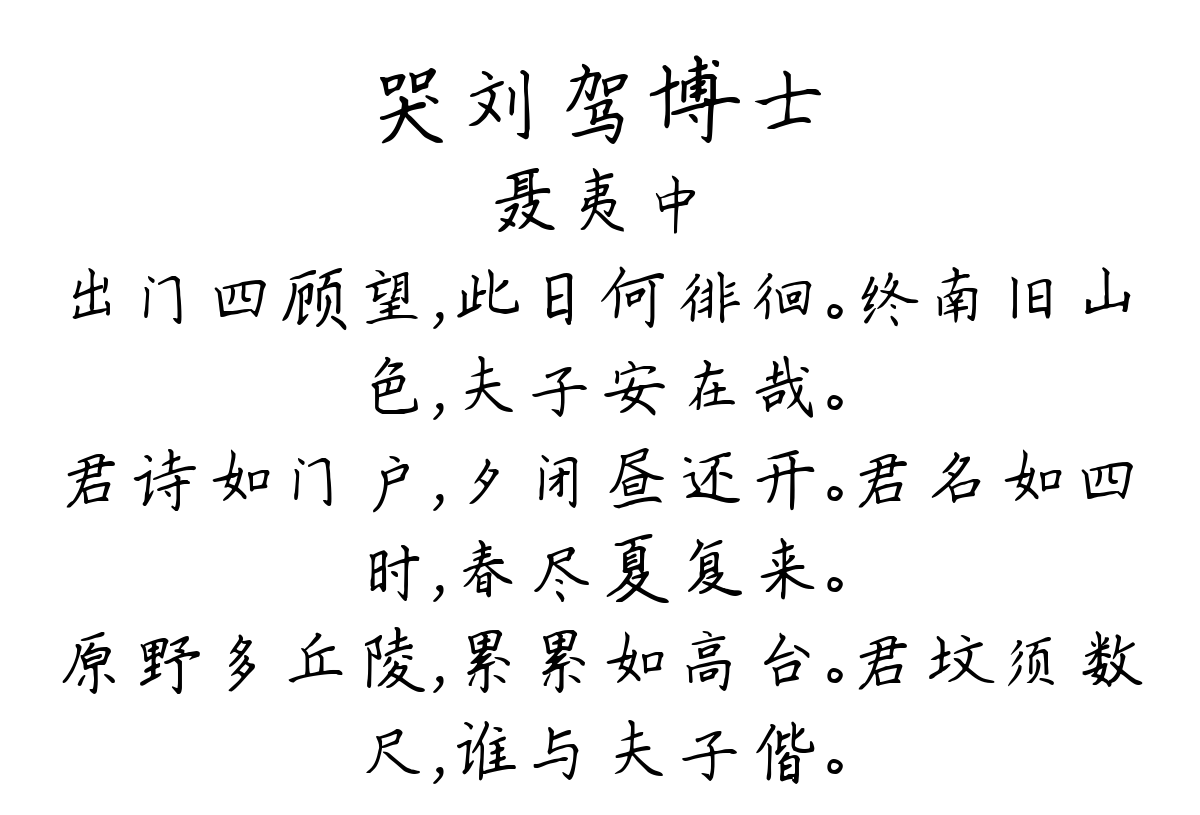 哭刘驾博士
聂夷中
出门四顾望,此日何徘徊。终南旧山
色,夫子安在哉。
君诗如门户,夕闭昼还开。君名如四
时,春尽夏复来。
原野多丘陵,累累如高台。君坟须数
尺,谁与夫子偕。